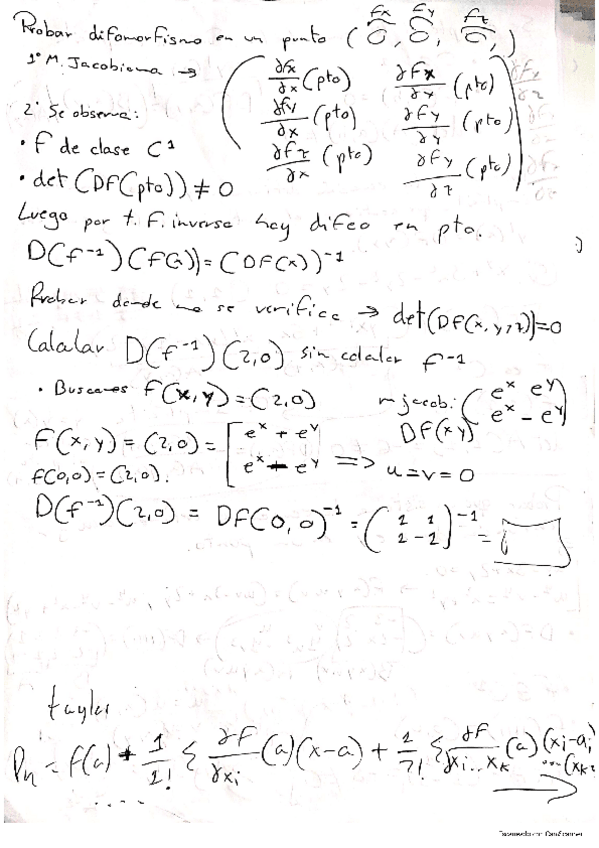 Probar difomorfismo en un punto ( fx, fy, fz )
1º M. Jacobiana → ( ∂fx/∂x (pto) ∂fx/∂y (pto) ∂fx/∂z
∂fy/∂x (pto) ∂fy/∂y (pto)
∂fz/∂x (pto) ∂fy/∂z (pto) )
2º Se observa:
• f de clase C¹
• det (DF(pto)) ≠ 0
Luego por t. F. inversa hay difeo en pto.
D(f⁻¹)(f(x)) = (DF(x))⁻¹
:)
Probar donde no se verifica → det(DF(x,y,z))=0
Calcular D(f⁻¹)(2,0) sin calcular f⁻¹
• Buscamos f(x,y) = (2,0)
m jacob: ( eˣ eʸ
eˣ - eʸ )
DF(xy)
F(x,y) = (2,0) = [ eˣ + eʸ
eˣ - eʸ ] => u=v=0
f(0,0) = (2,0).
D(f⁻¹)(2,0) = DF(0,0)⁻¹ = ( 1 1
1 -1 )⁻¹ =
taylor
Pn = f(a) + 1/1! { ∂F/∂xi (a)(x-a) + 1/2! { ∂F/∂xi..xk (a) (xi-ai)
...(xk-
....
Escaneado con CamScanner